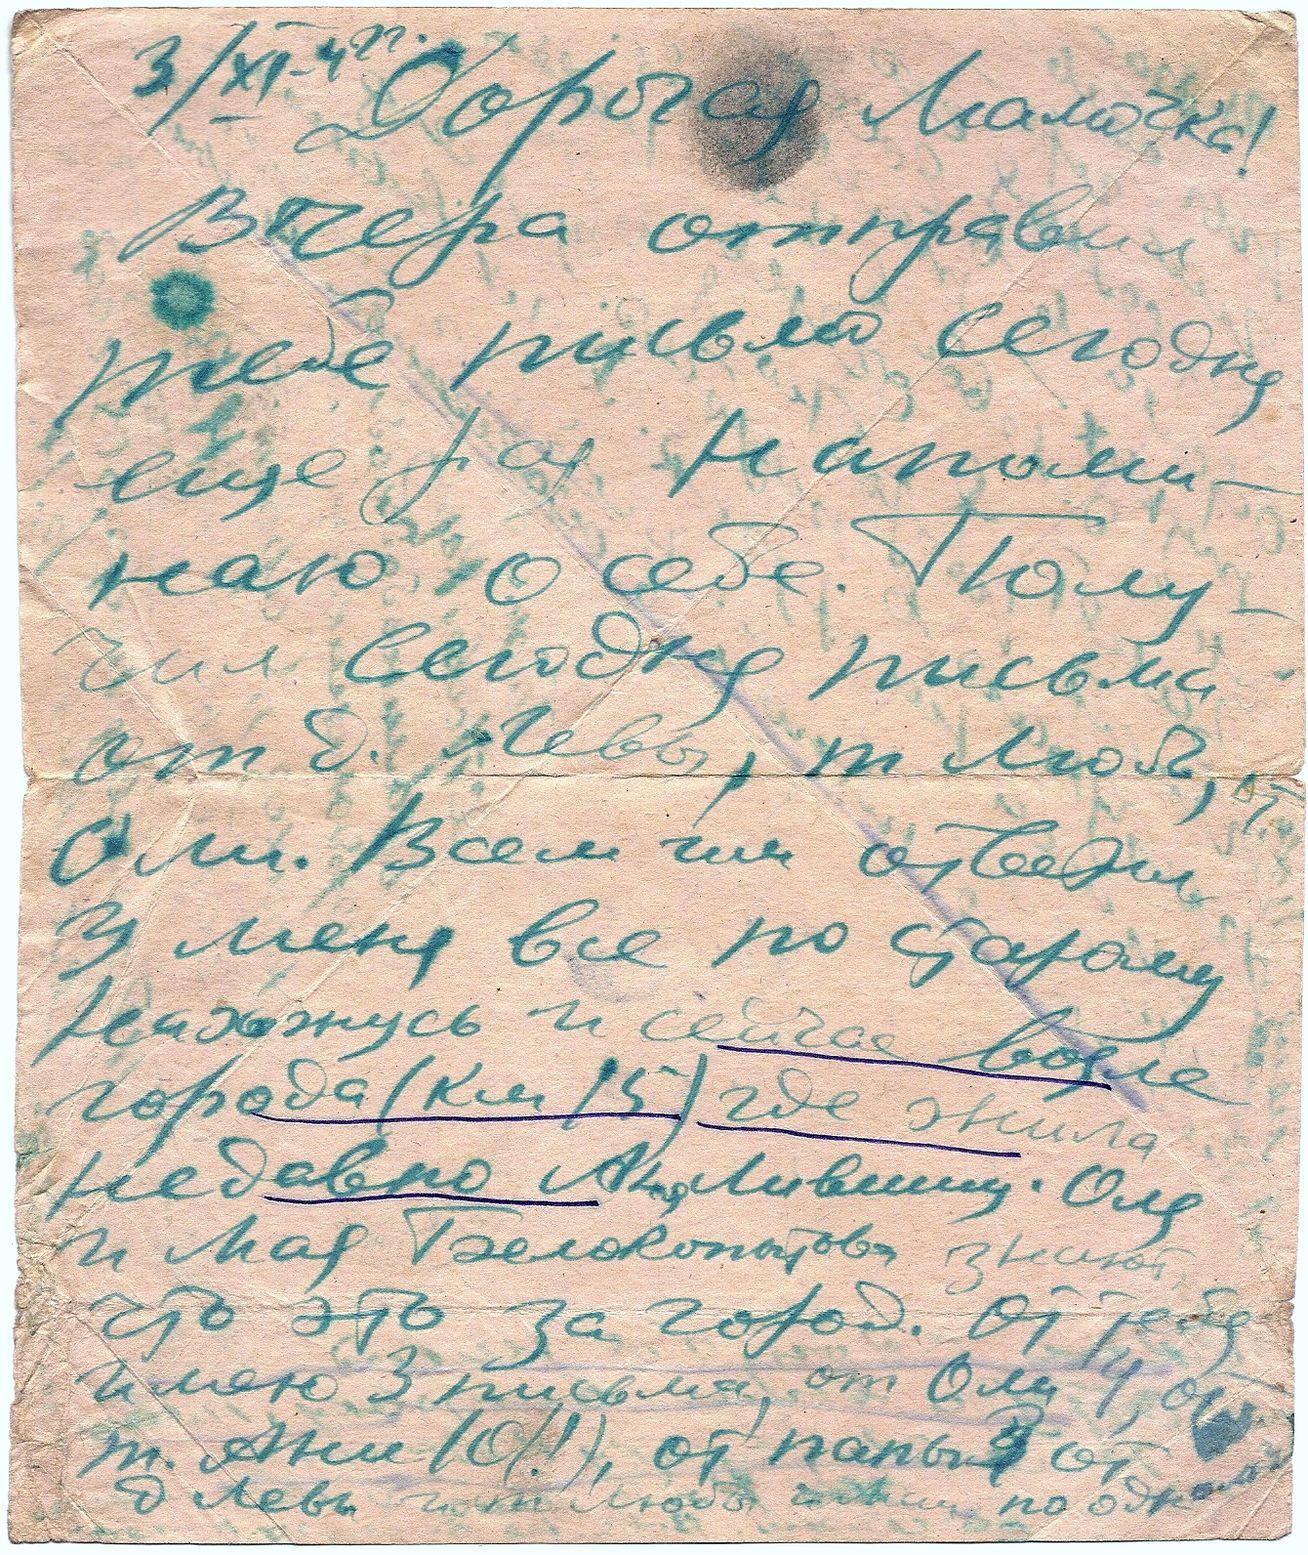 3/XI-4 г. Дорогая Мамочка!
Вчера отправил
тебе письмо сегодня
еще раз напоми-
наю о себе. Полу-
чил сегодня письма
от д. Левы, т Любы, от
Оли. Всем им ответил
У меня все по старому
Нахожусь и сейчас возле
города (км 15) где жила
недавно Аня Лившиц. Оля
и Мая Белокопытова знают,
что это за город. От тебя
имею 3 письма, от Оли 4, от
т. Ани 10(!), от папы 3 от
д Левы и т Любы по одному